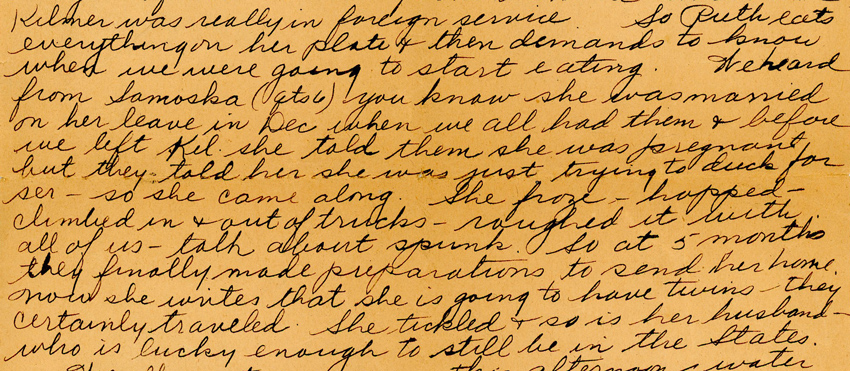 Kilmer was really in foreign service. So Ruth eats
everything on her plate & then demands to know
when we were going to start eating. We heard
from Samoska ( ) you know she was married
on her leave in Dec when we all had them & before
we left Kil. she told them she was pregnant,
but they told her she was just trying to duck for
ser - so she came along. She froze - hopped -
climbed in & out of trucks - roughed it with
all of us - talk about spunk. So at 5 months
they finally made preparations to send her home.
now she writes that she is going to have twins - they
certainly traveled. She tickled & so is her husband -
who is lucky enough to still be in the States.
this afternoon water